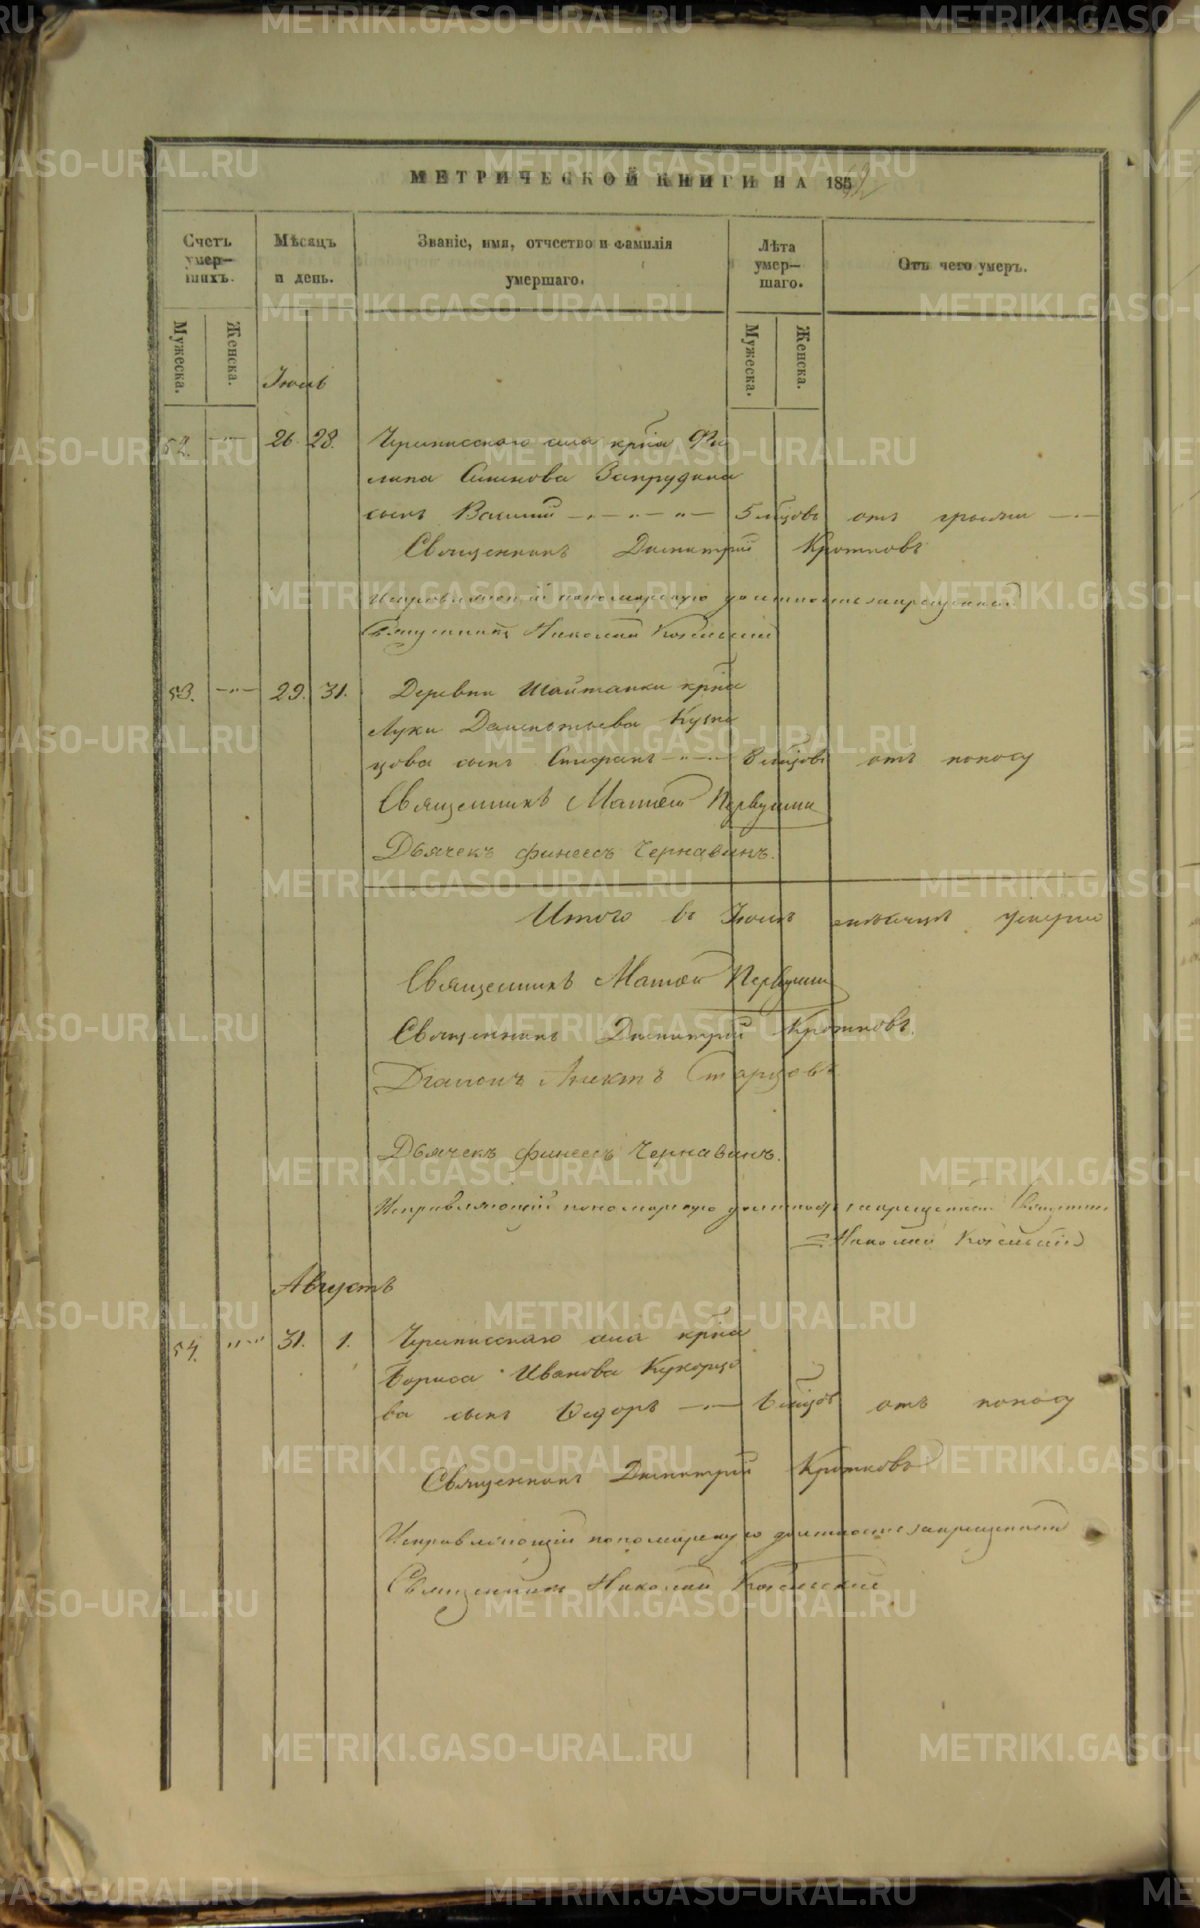 МЕТРИЧЕСКОЙ КНИГИ НА 185
Счетъ умер-шихъ.
Мужеска.
Женска.
Мѣсяцъ и день.
Званіе, имя, отчество и фамилія умершаго.
Лѣта умер-шаго.
Мужеска.
Женска.
Отъ чего умеръ.
Іюль
52. 26. 28. Черемисскаго села крна Фи
липа Симнова Запрудина
сынъ Василій 5 мцовъ отъ грыжи
Священникъ Димитрій Кротковъ
Исправляющій пономарскую должность запрещенный
Священникъ Николай
53. 29. 31. Деревни Шайтанки крна
Луки Дементьева Кузне
цова сынъ Стефанъ 8 мцовъ отъ поносу
Священникъ Матѳей Первушинъ
Дьячекъ Финеесъ Чернавинъ.
Итого въ Іюлѣ мѣсяцѣ умерло
Священникъ Матѳей Первушинъ
Священникъ Димитрій Кротковъ.
Діаконъ Аниктъ Старцовъ
Дьячекъ Финеесъ Чернавинъ.
Исправляющій пономарскую должность запрещенный Священникъ
Николай
Августъ
54. 31. 1. Черемисскаго села крна
Бориса Иванова Кукарцо
ва сынъ Ѳедоръ 6 мцовъ отъ поносу
Священникъ Димитрій Кротковъ
Исправляющій пономарскую должность запрещенный
Священникъ Николай
METRIKI.GASO-URAL.RU